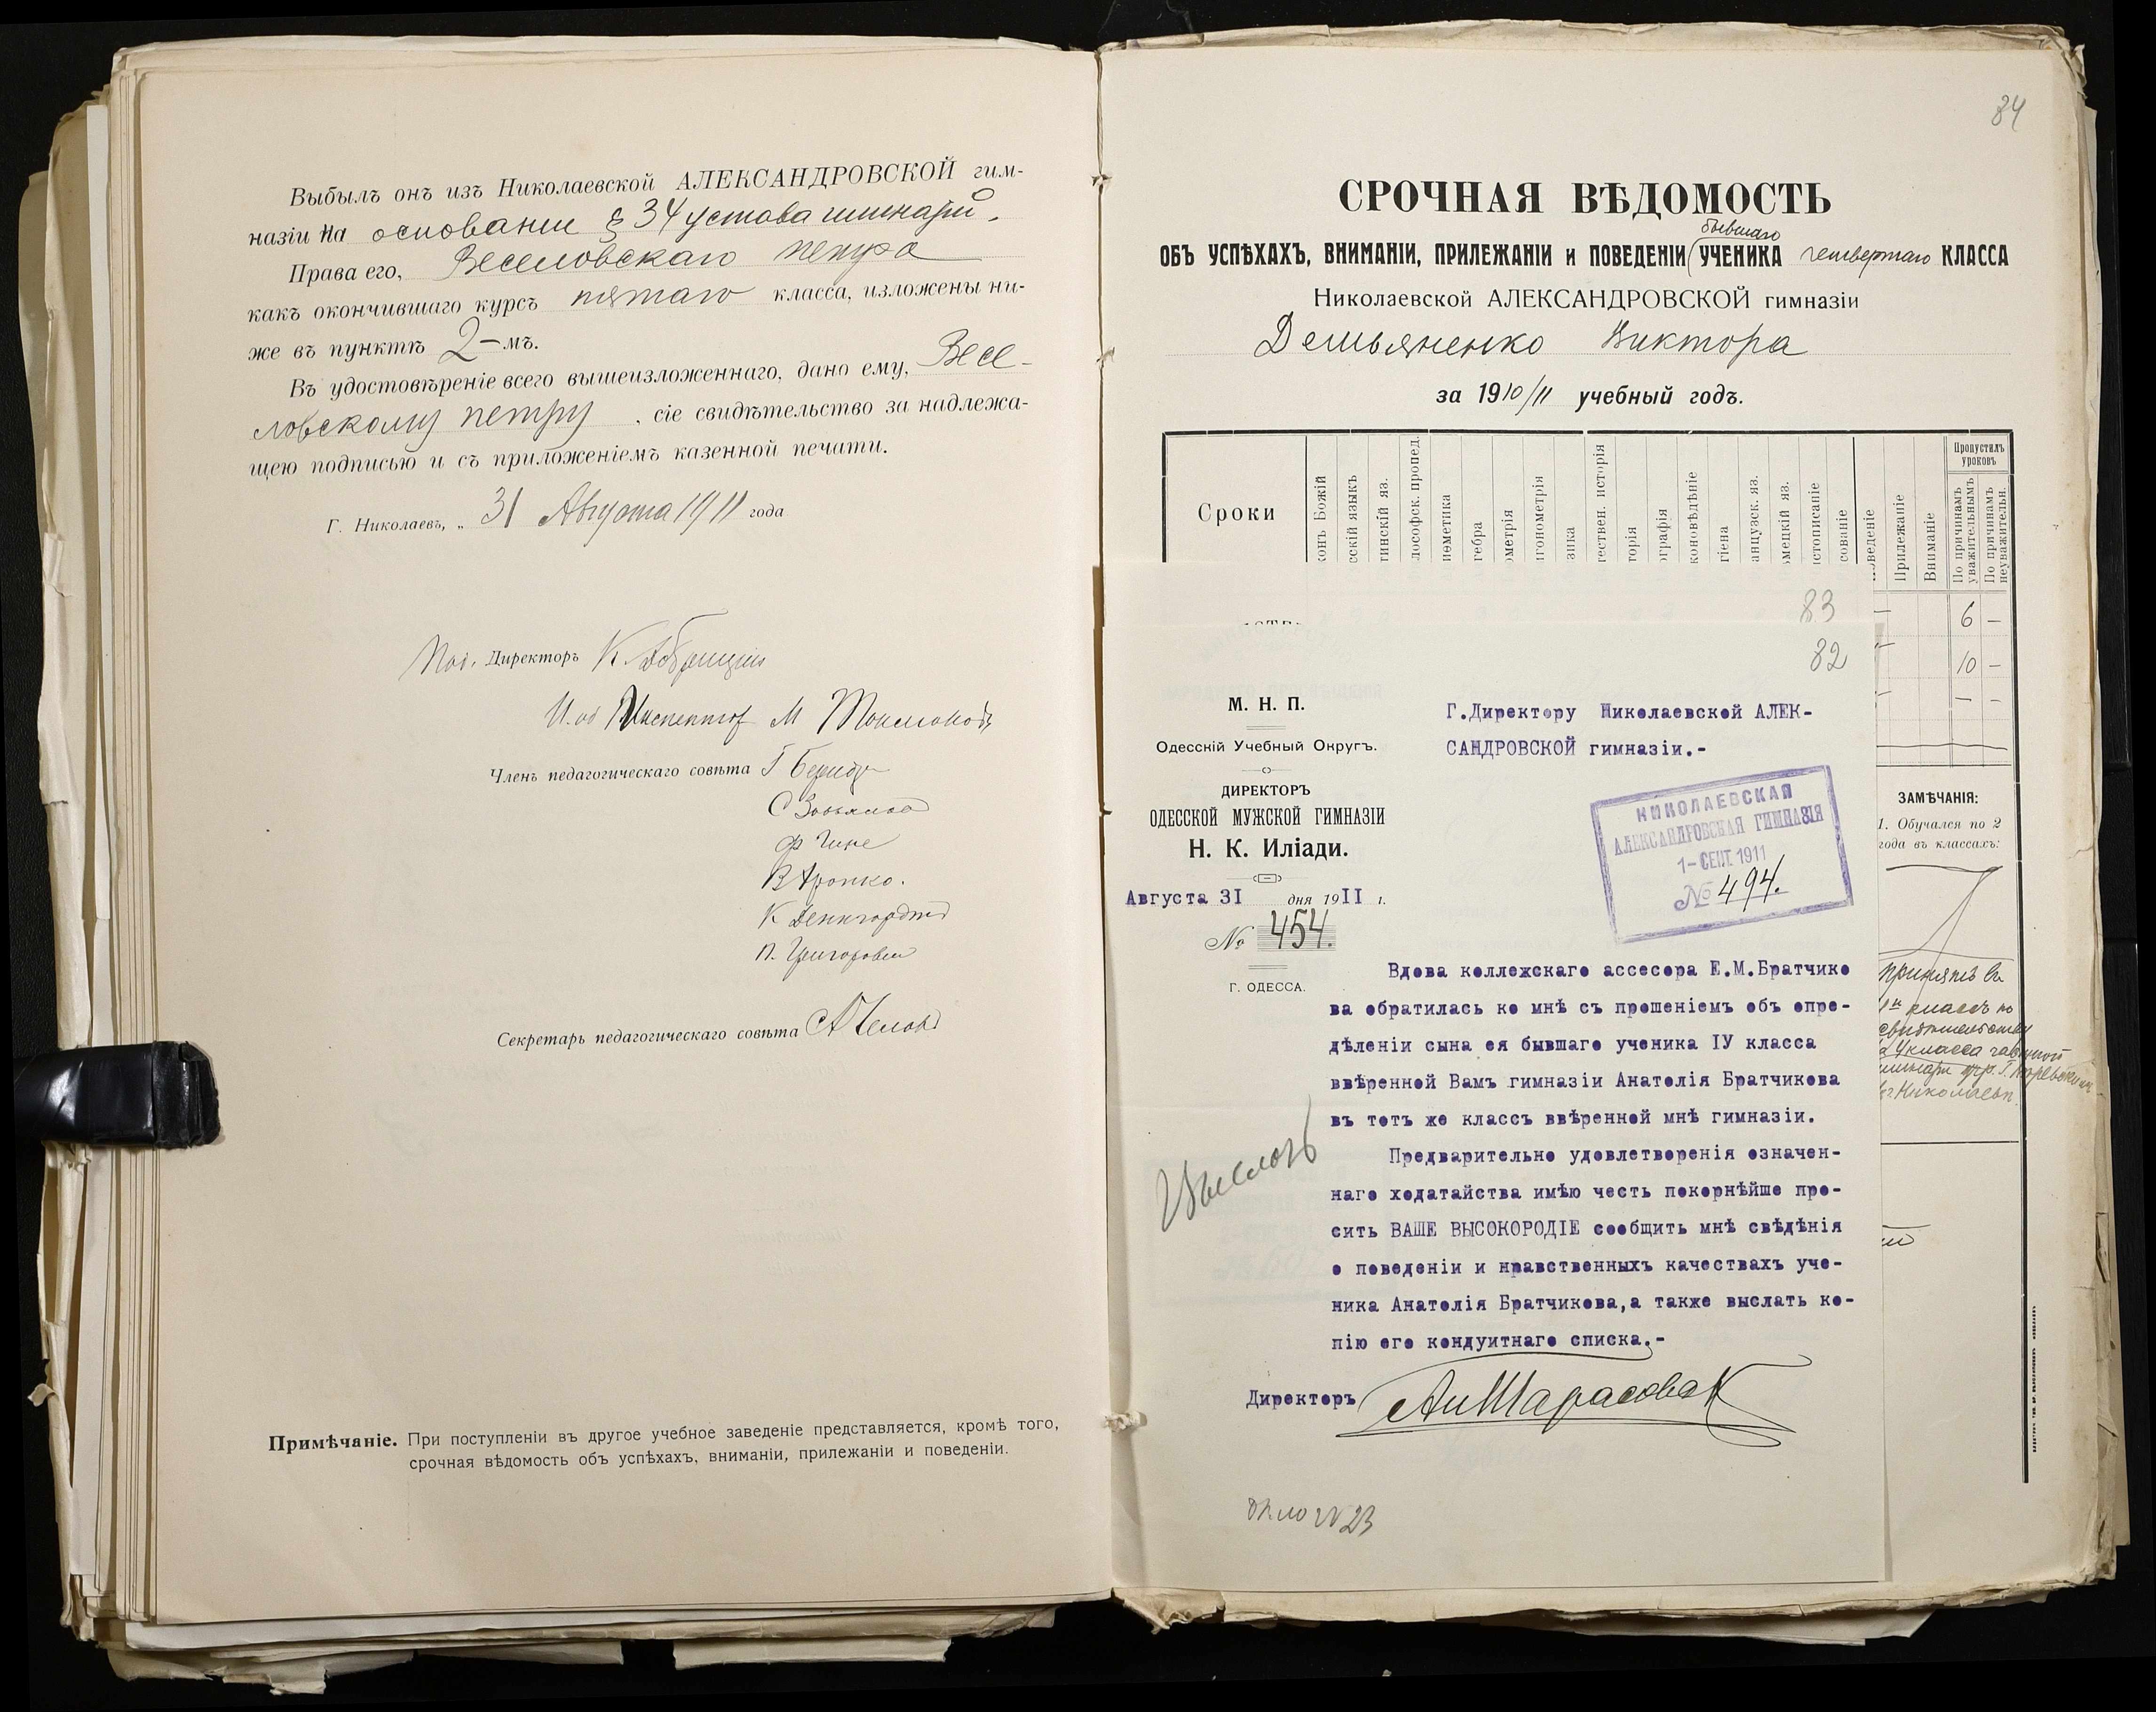 Выбылъ онъ изъ Николаевской АЛЕКСАНДРОВСКОЙ гим-
назіи на основаніи § 34 устава гимназій.
Права его, Веселовскаго Петра
какъ окончившаго курсъ пятаго класса, изложены ни-
же въ пунктѣ 2-мъ.
Въ удостовѣреніе всего вышеизложеннаго, дано ему, Весе-
ловскому Петру, сіе свидѣтельство за надлежа-
щею подписью и съ приложеніемъ казенной печати.
Г. Николаевъ, „ 31 Августа 1911 года
Директоръ К.
И. об Инспектора М
Членъ педагогическаго совѣта Г
С
Ф
В
К
П. Григорович
Секретарь педагогическаго совѣта А
Примѣчаніе. При поступленіи въ другое учебное заведеніе представляется, кромѣ того,
срочная вѣдомость объ успѣхахъ, вниманіи, прилежаніи и поведеніи.
84
СРОЧНАЯ ВѢДОМОСТЬ
бывшаго
ОБЪ УСПѢХАХЪ, ВНИМАНІИ, ПРИЛЕЖАНІИ и ПОВЕДЕНІИ УЧЕНИКА четвертаго КЛАССА
Николаевской АЛЕКСАНДРОВСКОЙ гимназіи
Демьяненко Виктора
за 1910/11 учебный годъ.
Сроки
онъ Божій
скій языкъ
инскій яз.
лософск. пропед.
иѳметика
гебра
ометрія
игонометрія
зика
тествен. исторія
торія
ографія
коновѣдѣніе
гіена
анцузск. яз.
мецкій яз.
стописаніе
сованіе
оведеніе
Прилежаніе
Вниманіе
Пропустилъ
уроковъ
По причинамъ
уважительнымъ
По причинамъ
неуважительн.
6 –
10 –
– –
ЗАМѢЧАНІЯ:
1. Обучался по 2
года въ классахъ:
принятъ въ
классъ по
свидѣтельству
класса частной
Николаевѣ
83
82
М. Н. П.
Одесскій Учебный Округъ.
ДИРЕКТОРЪ
ОДЕССКОЙ МУЖСКОЙ ГИМНАЗІИ
Н. К. Иліади.
Августа 3I дня 19II г.
№ 454.
Г. ОДЕССА.
Г.Директору Николаевской АЛЕК-
САНДРОВСКОЙ гимназіи.-
НИКОЛАЕВСКАЯ
АЛЕКСАНДРОВСКАЯ ГИМНАЗІЯ
1-СЕНТ.1911
№ 494.
Вдова коллежскаго ассесора Е.М.Братчико
ва обратилась ко мнѣ съ прошеніемъ объ опре-
дѣленіи сына ея бывшаго ученика IУ класса
ввѣренной Вамъ гимназіи Анатолія Братчикова
въ тотъ же классъ ввѣренной мнѣ гимназіи.
Предварительно удовлетворенія означен-
наго ходатайства имѣю честь покорнѣйше про-
сить ВАШЕ ВЫСОКОРОДІЕ сообщить мнѣ свѣдѣнія
о поведеніи и нравственныхъ качествахъ уче-
ника Анатолія Братчикова,а также выслать ко-
пію его кондуитнаго списка.-
Директоръ